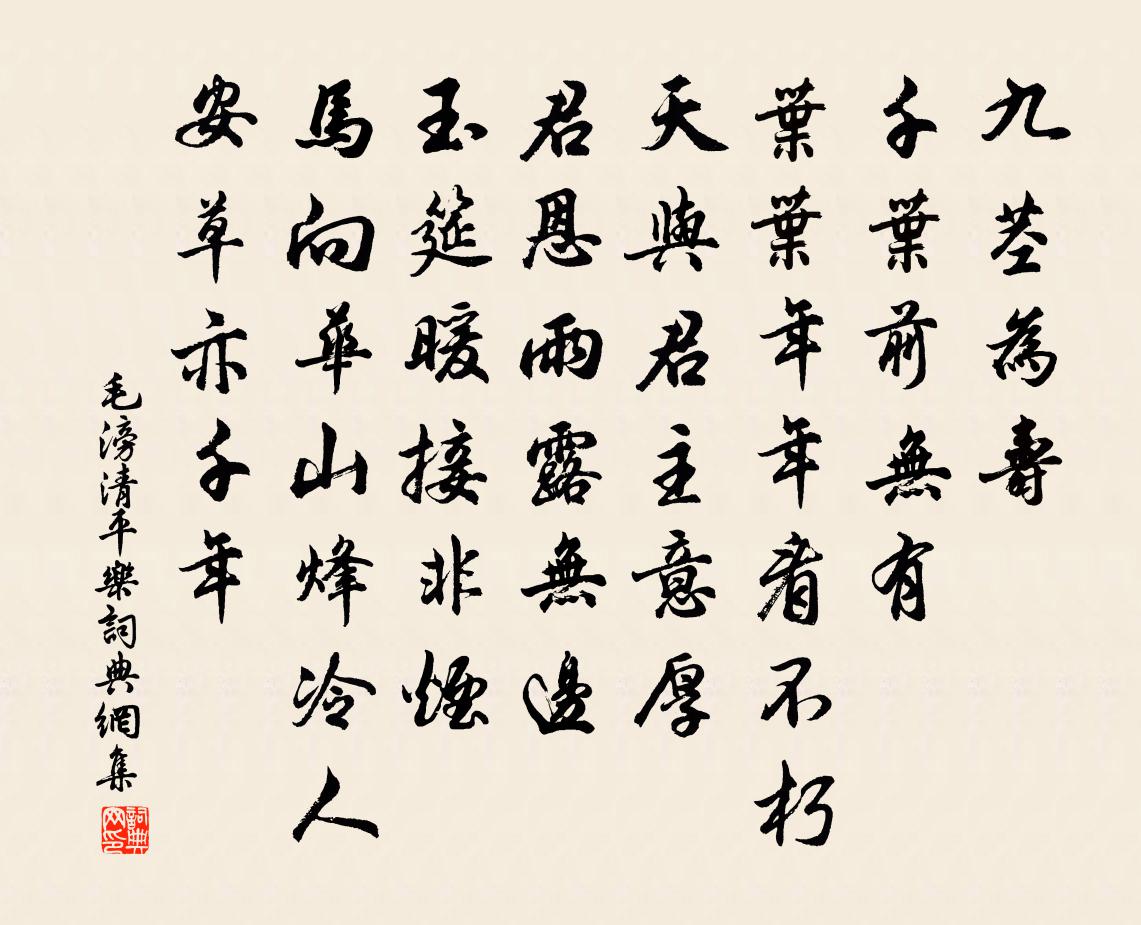 九莖為壽
千葉前無有
葉葉年年看不朽
天與君主意厚
君恩雨露無邊
玉筵暖接非煙
馬向華山烽冷人
安草亦千年
毛滂清平樂詞典網集
詞典
网印